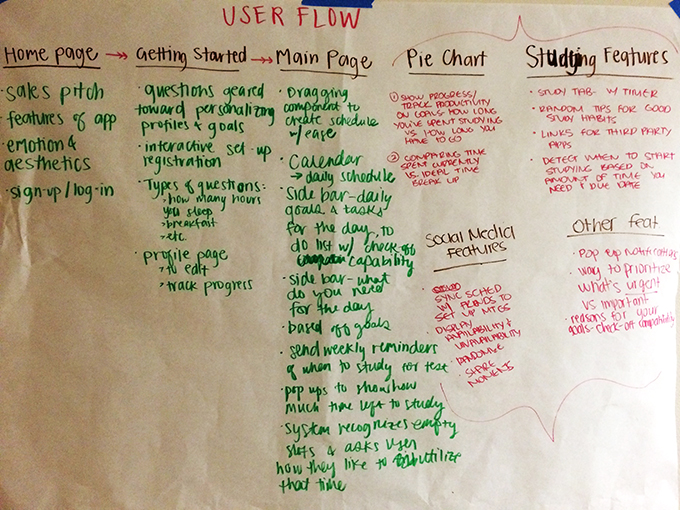 USER FLOW
Home page →
· sales pitch
· features of app
· emotion &
aesthetics
· sign-up/log-in
Getting Started →
· questions geared
toward personalizing
profiles & goals
· interactive set-up
registration
· Types of questions:
· how many hours
you sleep
· breakfast
· etc.
· profile page
· to edit
· track progress
Main Page
· Dragging
component to
create schedule
w/ ease
· Calendar
→ daily schedule
· Side bar-daily
goals & tasks
for the day, to
do list w/ check-off
capability
· side bar- what
do you need
for the day
· based off goals
· send weekly reminders
of when to study for test
· pop ups to show how
much time left to study
· system recognizes empty
slots & asks user
how they like to utilize
that time
Pie Chart
① SHOW PROGRESS/
TRACK PRODUCTIVITY
ON GOALS- HOW LONG
YOU'VE SPENT STUDYING
VS. HOW LONG YOU
HAVE TO GO
② COMPARING TIME
SPENT CURRENTLY
VS. IDEAL TIME
BREAK UP
Social Media
Features
· SYNC SCHED
W/ FRIENDS TO
SET UP MTGS
· DISPLAY
AVAILABILITY &
UNAVAILABILITY
· SHARE
MOMENTS
Studying Features
· STUDY TAB- W/ TIMER
· RANDOM TIPS FOR GOOD
STUDY HABITS
· LINKS FOR THIRD PARTY
APPS
· DETECT WHEN TO START
STUDYING BASED ON
AMOUNT OF TIME YOU
NEED & DUE DATE
Other feat
· Pop up notifications
· way to prioritize
what's urgent
vs important
· reasons for your
goals-check-off